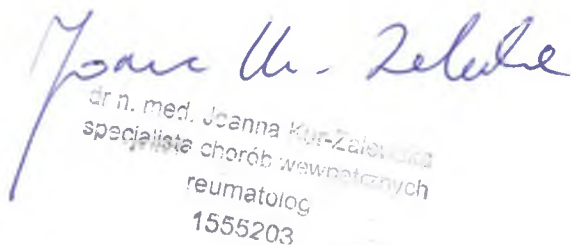 dr n. med. Joanna Kur-Zalewska
specjalista chorób wewnętrznych
reumatolog
1555203